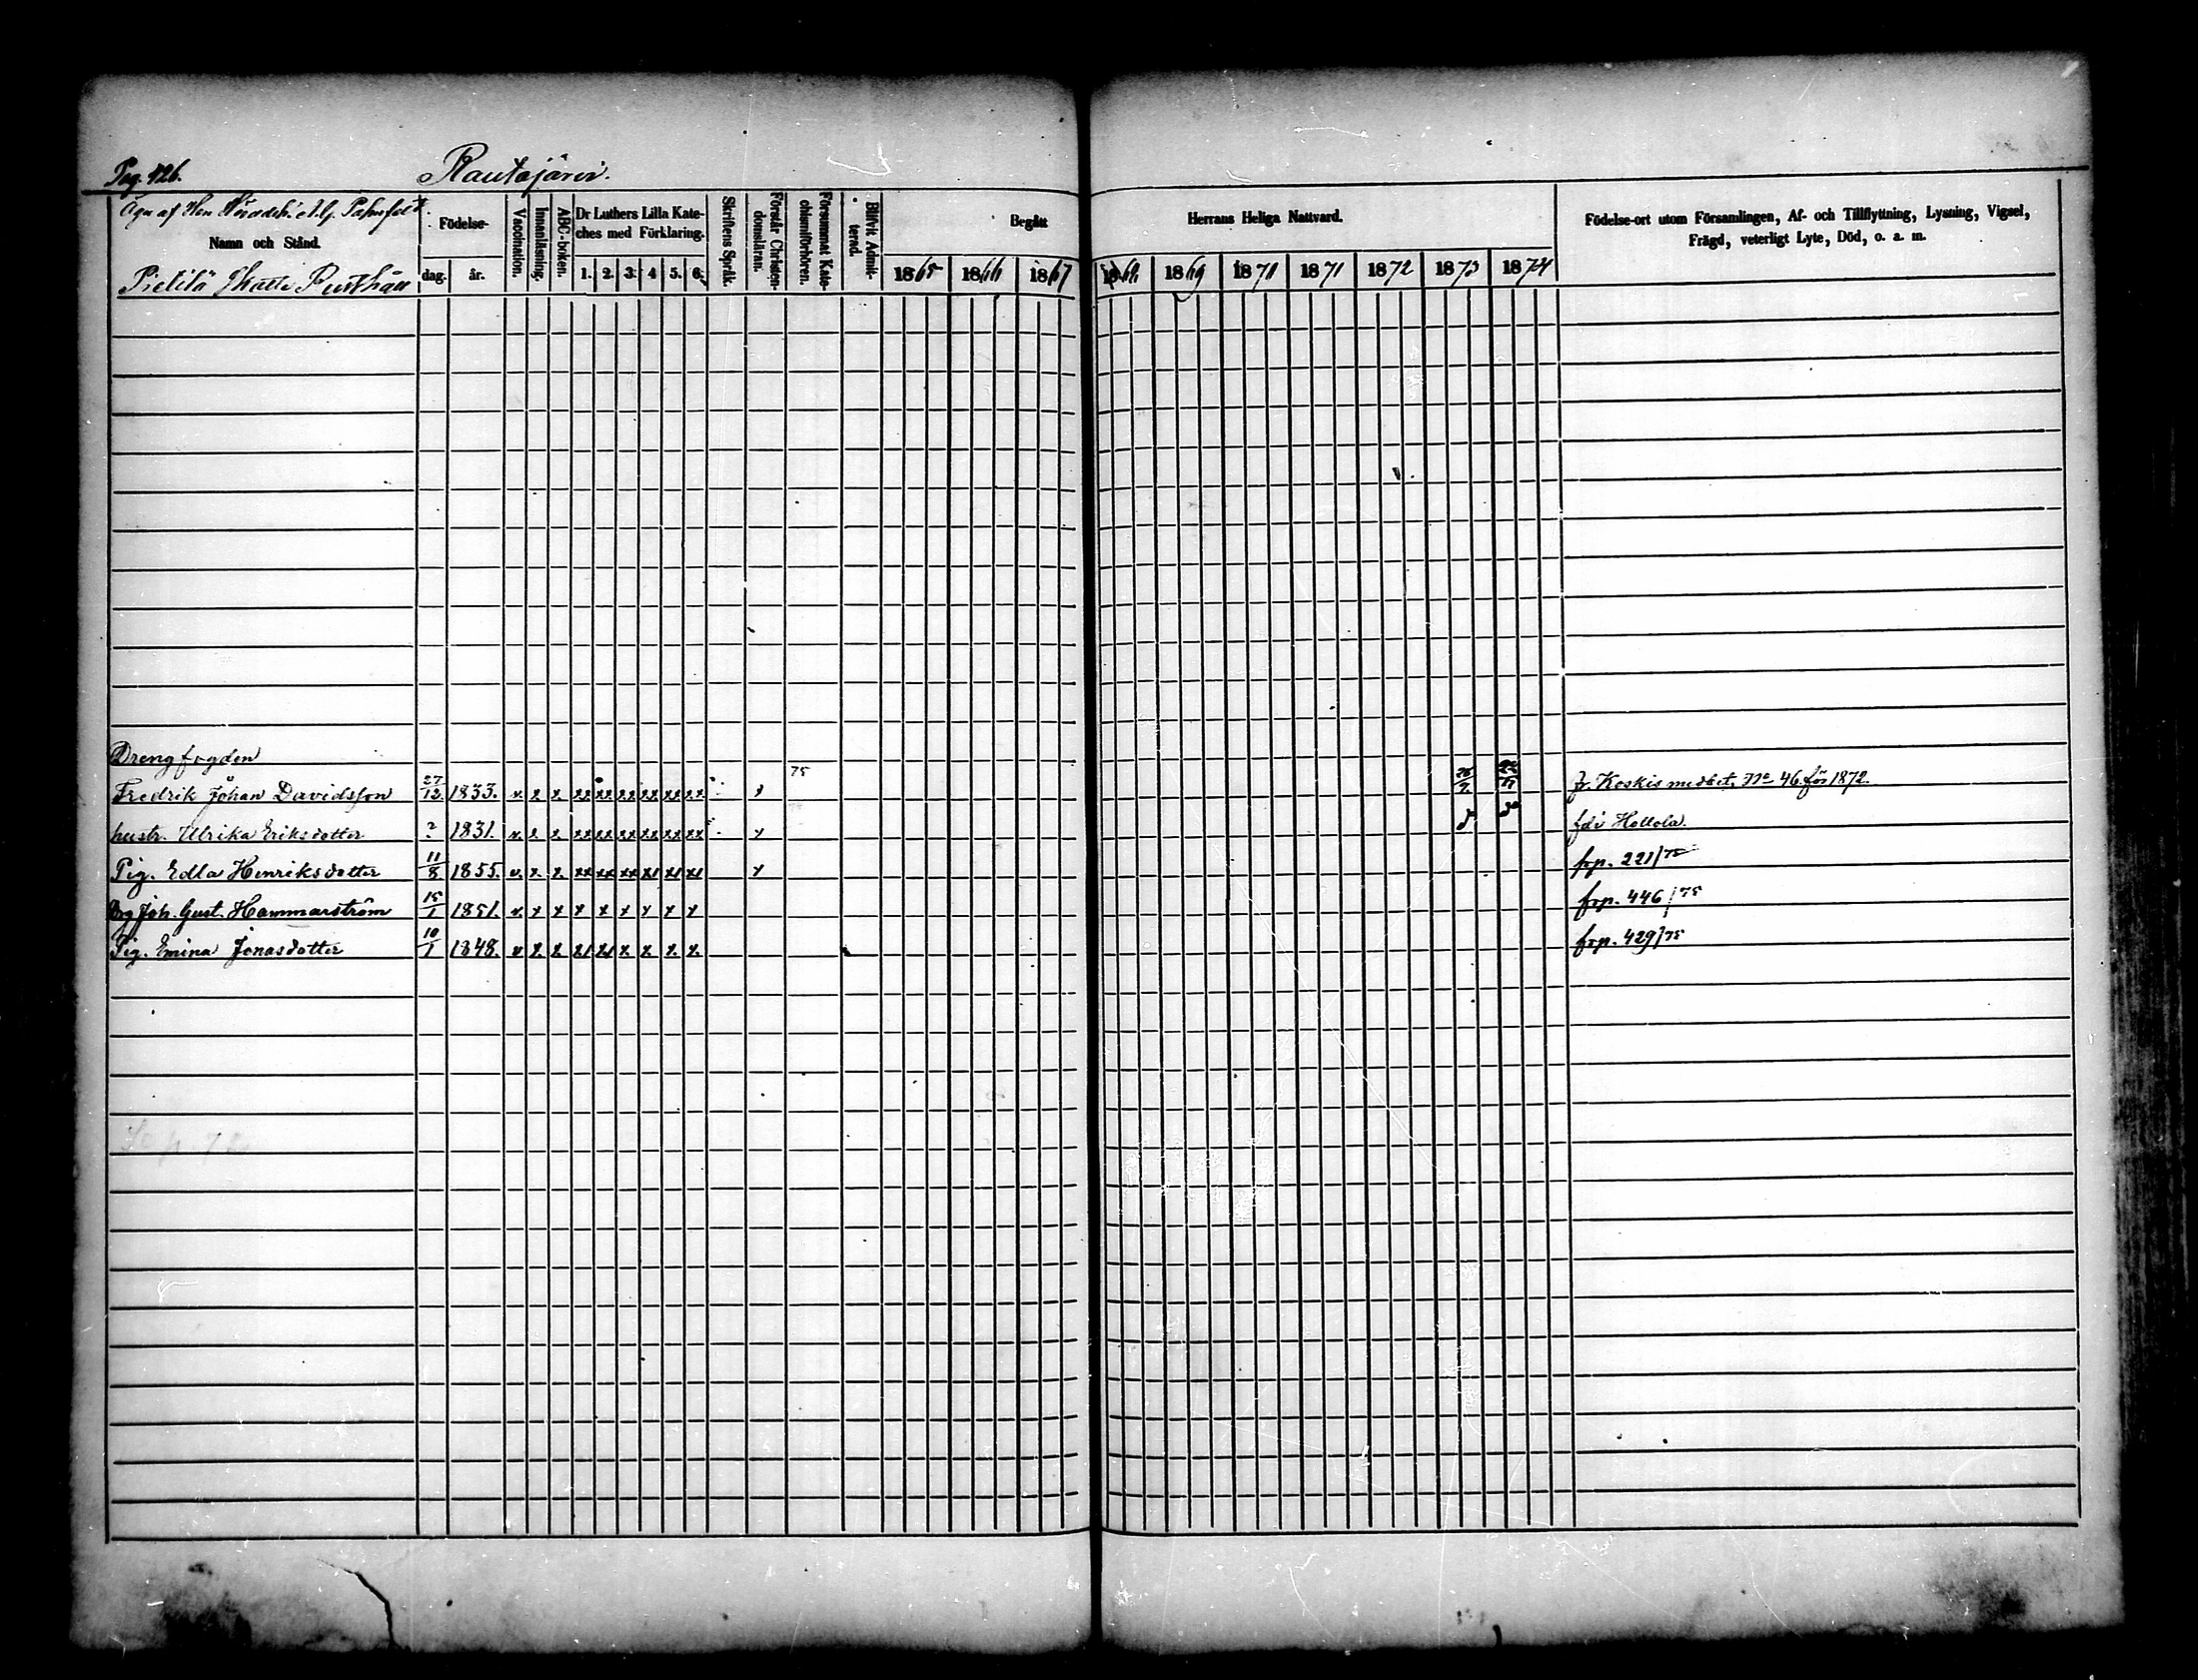 Pag. 426.
Rautajärvi.
Äga af Herr Häradsh. A. G. Palmfelt.
Namn och Stånd.
Pietilä Skatte Rusthåll
Födelse-
dag.
år.
Vaccination.
Innanläsning.
ABC-boken.
Dr Luthers Lilla Kate-
ches med Förklaring.
1. 2. 3. 4 5. 6.
Skriftens Språk.
Förstår Christen-
domsläran.
Försummat Kate-
chismiförhören.
Blifvit Admit-
terad.
Begått
Herrans Heliga Nattvard.
1865 1866 1867
1868 1869 1870 1871 1872 1873 1874
Födelse-ort utom Församlingen, Af- och Tillflyttning, Lysning, Vigsel,
Frägd, veterligt Lyte, Död, o. a. m.
Drengfogden
Fredrik Johan Davidsson 27/12 1833. v x x xx xx xx xx xx xx x 75 fr. Koskis medbet. No 46 för 1872.
hustr. Ulrika Eriksdotter ? 1831. v x x xx xx xx xx xx xx x fdi Hollola.
Pig. Edla Henriksdotter 11/8 1855. v. x. x. xx xx xx x x x x frp. 221/75
Drg Joh. Gust. Hammarström 15/1 1851. v x x x x x x x x frp. 446/75
Pig. Emina Jonasdotter 10/1 1848. v x. x x x x. x x. x. frp. 429/75